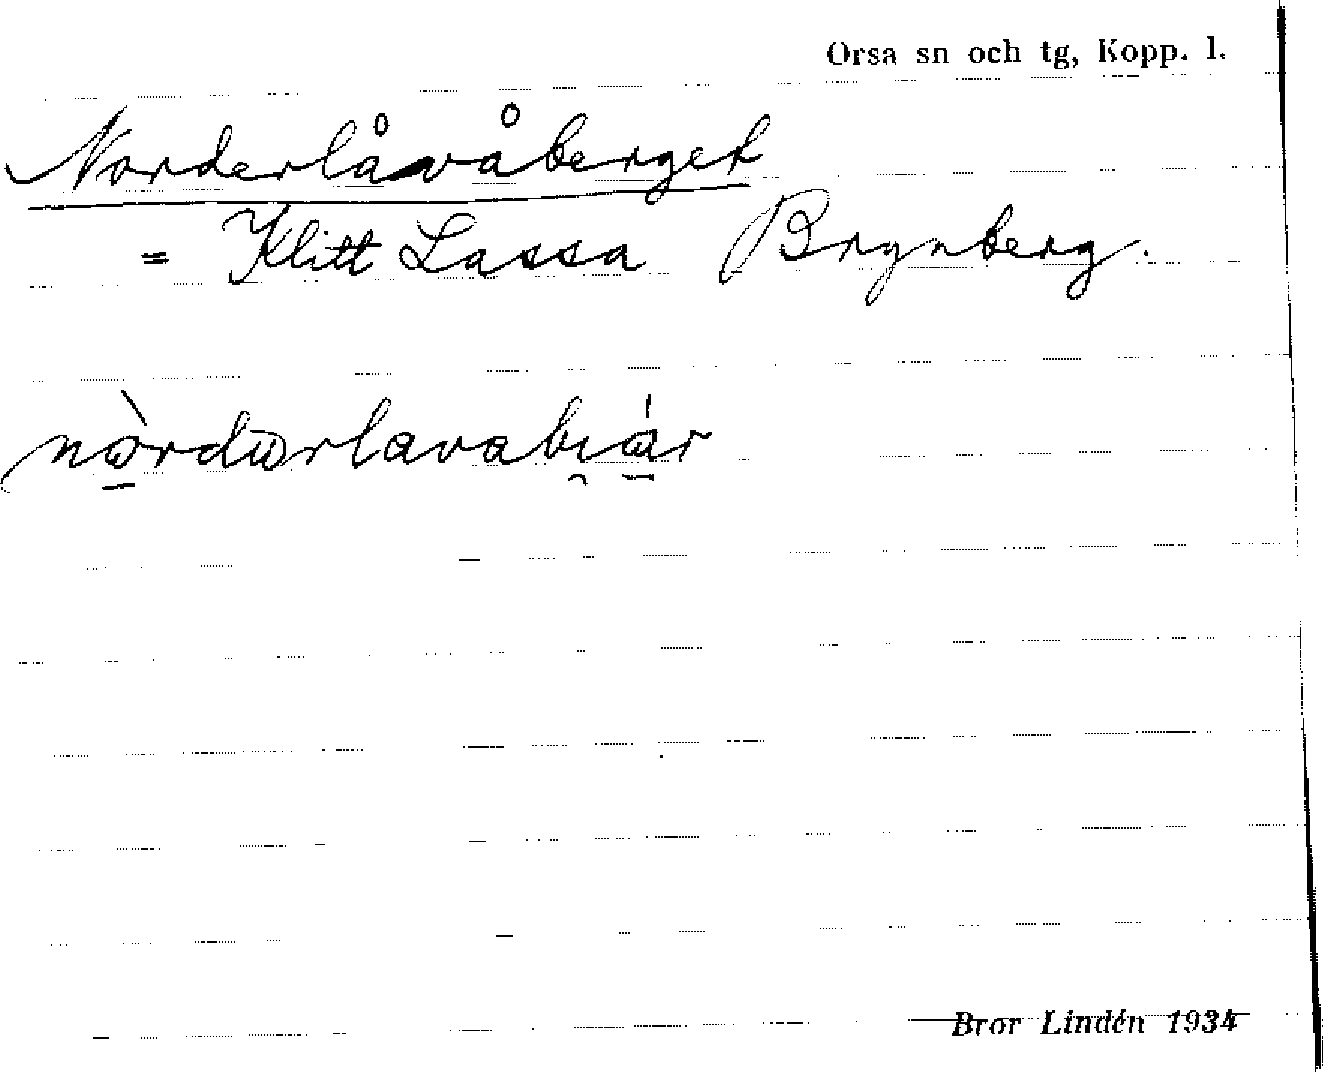 Orsa sn och tg, Kopp. l.
Norderlåvåberget
= Klitt Lassa Brynberg.
Bror Lindén 1934